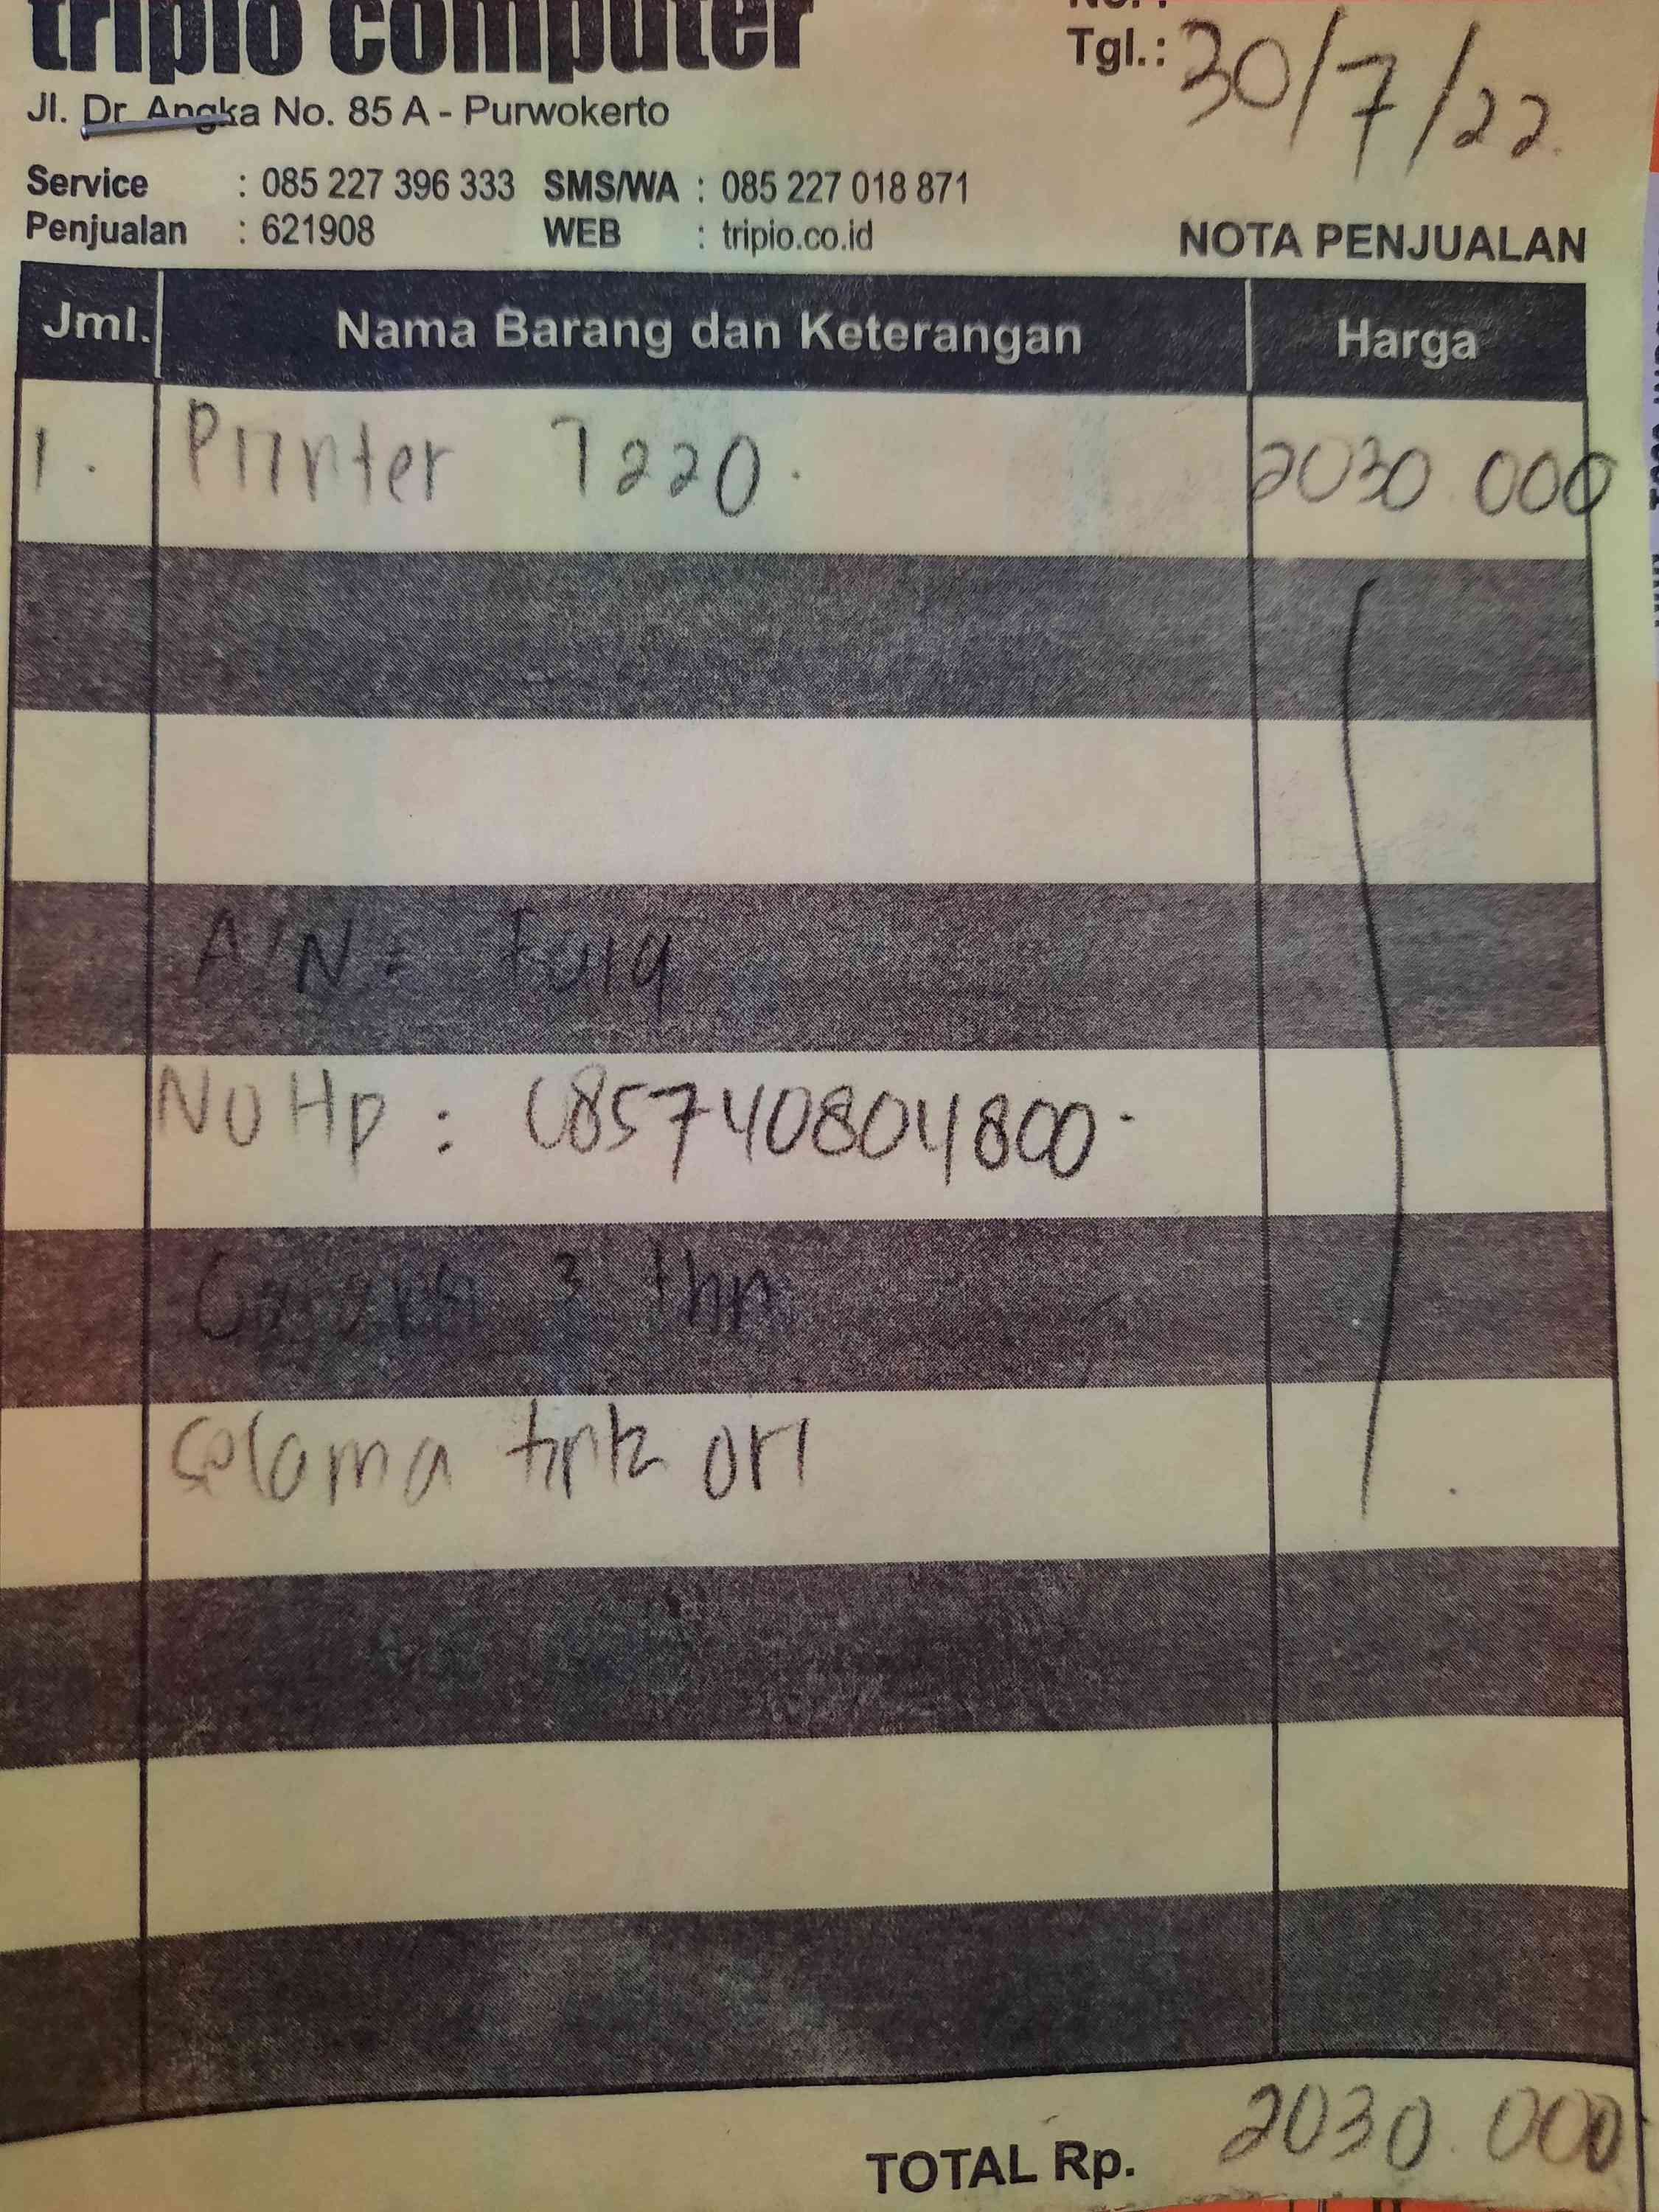 tripio computer
No. :
Tgl.: 30/7/22.
Jl. Dr. Angka No. 85 A - Purwokerto
Service : 085 227 396 333 SMS/WA : 085 227 018 871
Penjualan : 621908 WEB : tripio.co.id
NOTA PENJUALAN
Jml. Nama Barang dan Keterangan Harga
1. Printer T220. 2030.000
A/N =
No Hp : 085740804800.
3 thn
selama tinta ori
TOTAL Rp. 2030.000